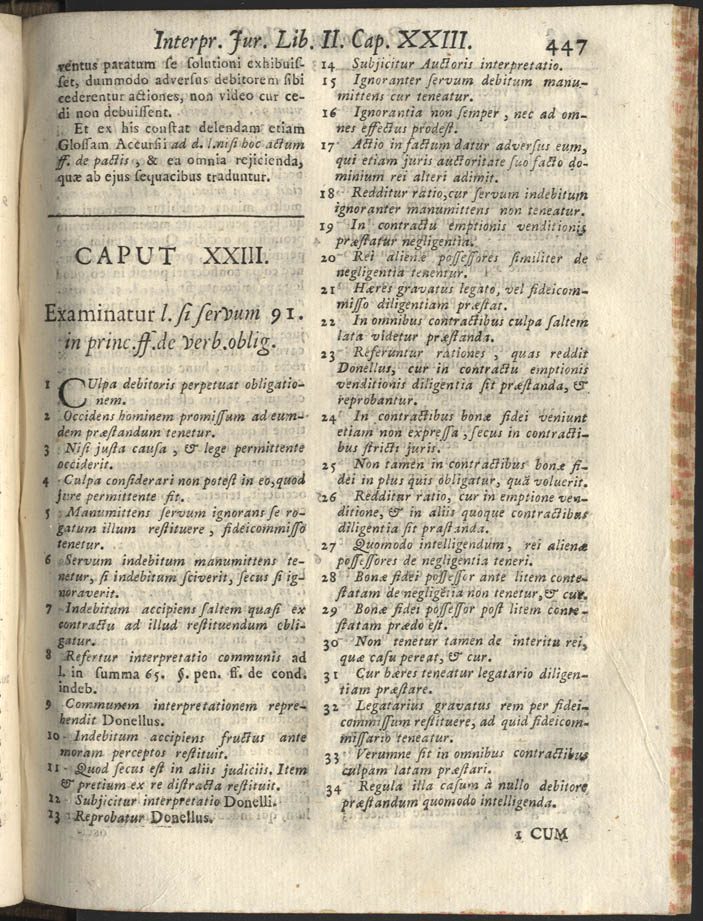 Interpr. Jur. Lib. II. Cap. XXIII. 447
ventus paratum se solutioni exhibuis-
set, dummodo adversus debitorem sibi
cederentur actiones, non video cur ce-
di non debuissent.
Et ex his constat delendam etiam
Glossam Accursii ad d. l. nisi hoc actum
ff. de pactis, & ea omnia rejicienda,
quæ ab ejus sequacibus traduntur.
CAPUT XXIII.
Examinatur l. si servum 91.
in princ. ff. de verb. oblig.
1 CUlpa debitoris perpetuat obligatio-
nem.
2 Occidens hominem promissum ad eum-
dem præstandum tenetur.
3 Nisi justa causa, & lege permittente
occiderit.
4 Culpa considerari non potest in eo, quod
jure permittente fit.
5 Manumittens servum ignorans se ro-
gatum illum restituere, fideicommisso
tenetur.
6 Servum indebitum manumittens te-
netur, si indebitum sciverit, secus si ig-
noraverit.
7 Indebitum accipiens saltem quasi ex
contractu ad illud restituendum obli-
gatur.
8 Refertur interpretatio communis ad
l. in summa 65. §. pen. ff. de cond.
indeb.
9 Communem interpretationem repre-
hendit Donellus.
10 Indebitum accipiens fructus ante
moram perceptos restituit.
11 Quod secus est in aliis judiciis. Item
& pretium ex re distracta restituit.
12 Subjicitur interpretatio Donelli.
13 Reprobatur Donellus.
14 Subjicitur Auctoris interpretatio.
15 Ignoranter servum debitum manu-
mittens cur teneatur.
16 Ignorantia non semper, nec ad om-
nes effectus prodest.
17 Actio in factum datur adversus eum,
qui etiam juris auctoritate suo facto do-
minium rei alteri adimit.
18 Redditur ratio, cur servum indebitum
ignoranter manumittens non teneatur.
19 In contractu emptionis venditionis
præstatur negligentia.
20 Rei alienæ possessores similiter de
negligentia tenentur.
21 Hæres gravatus legato, vel fideicom-
misso diligentiam præstat.
22 In omnibus contractibus culpa saltem
lata videtur præstanda.
23 Referuntur rationes, quas reddit
Donellus, cur in contractu emptionis
venditionis diligentia sit præstanda, &
reprobantur.
24 In contractibus bonæ fidei veniunt
etiam non expressa, secus in contracti-
bus stricti juris.
25 Non tamen in contractibus bonæ fi-
dei in plus quis obligatur, quà voluerit.
26 Redditur ratio, cur in emptione ven-
ditione, & in aliis quoque contractibus
diligentia sit præstanda.
27 Quomodo intelligendum, rei alienæ
possessores de negligentia teneri.
28 Bonæ fidei possessor ante litem conte-
statam de negligẽtia non tenetur, & cur.
29 Bonæ fidei possessor post litem conte-
statam prædo est.
30 Non tenetur tamen de interitu rei,
quæ casu pereat, & cur.
31 Cur hæres teneatur legatario diligen-
tiam præstare.
32 Legatarius gravatus rem per fidei-
commissum restituere, ad quid fideicom-
missario teneatur.
33 Verumne sit in omnibus contractibus
culpam latam præstari.
34 Regula illa casum à nullo debitore
præstandum quomodo intelligenda.
1 CUM